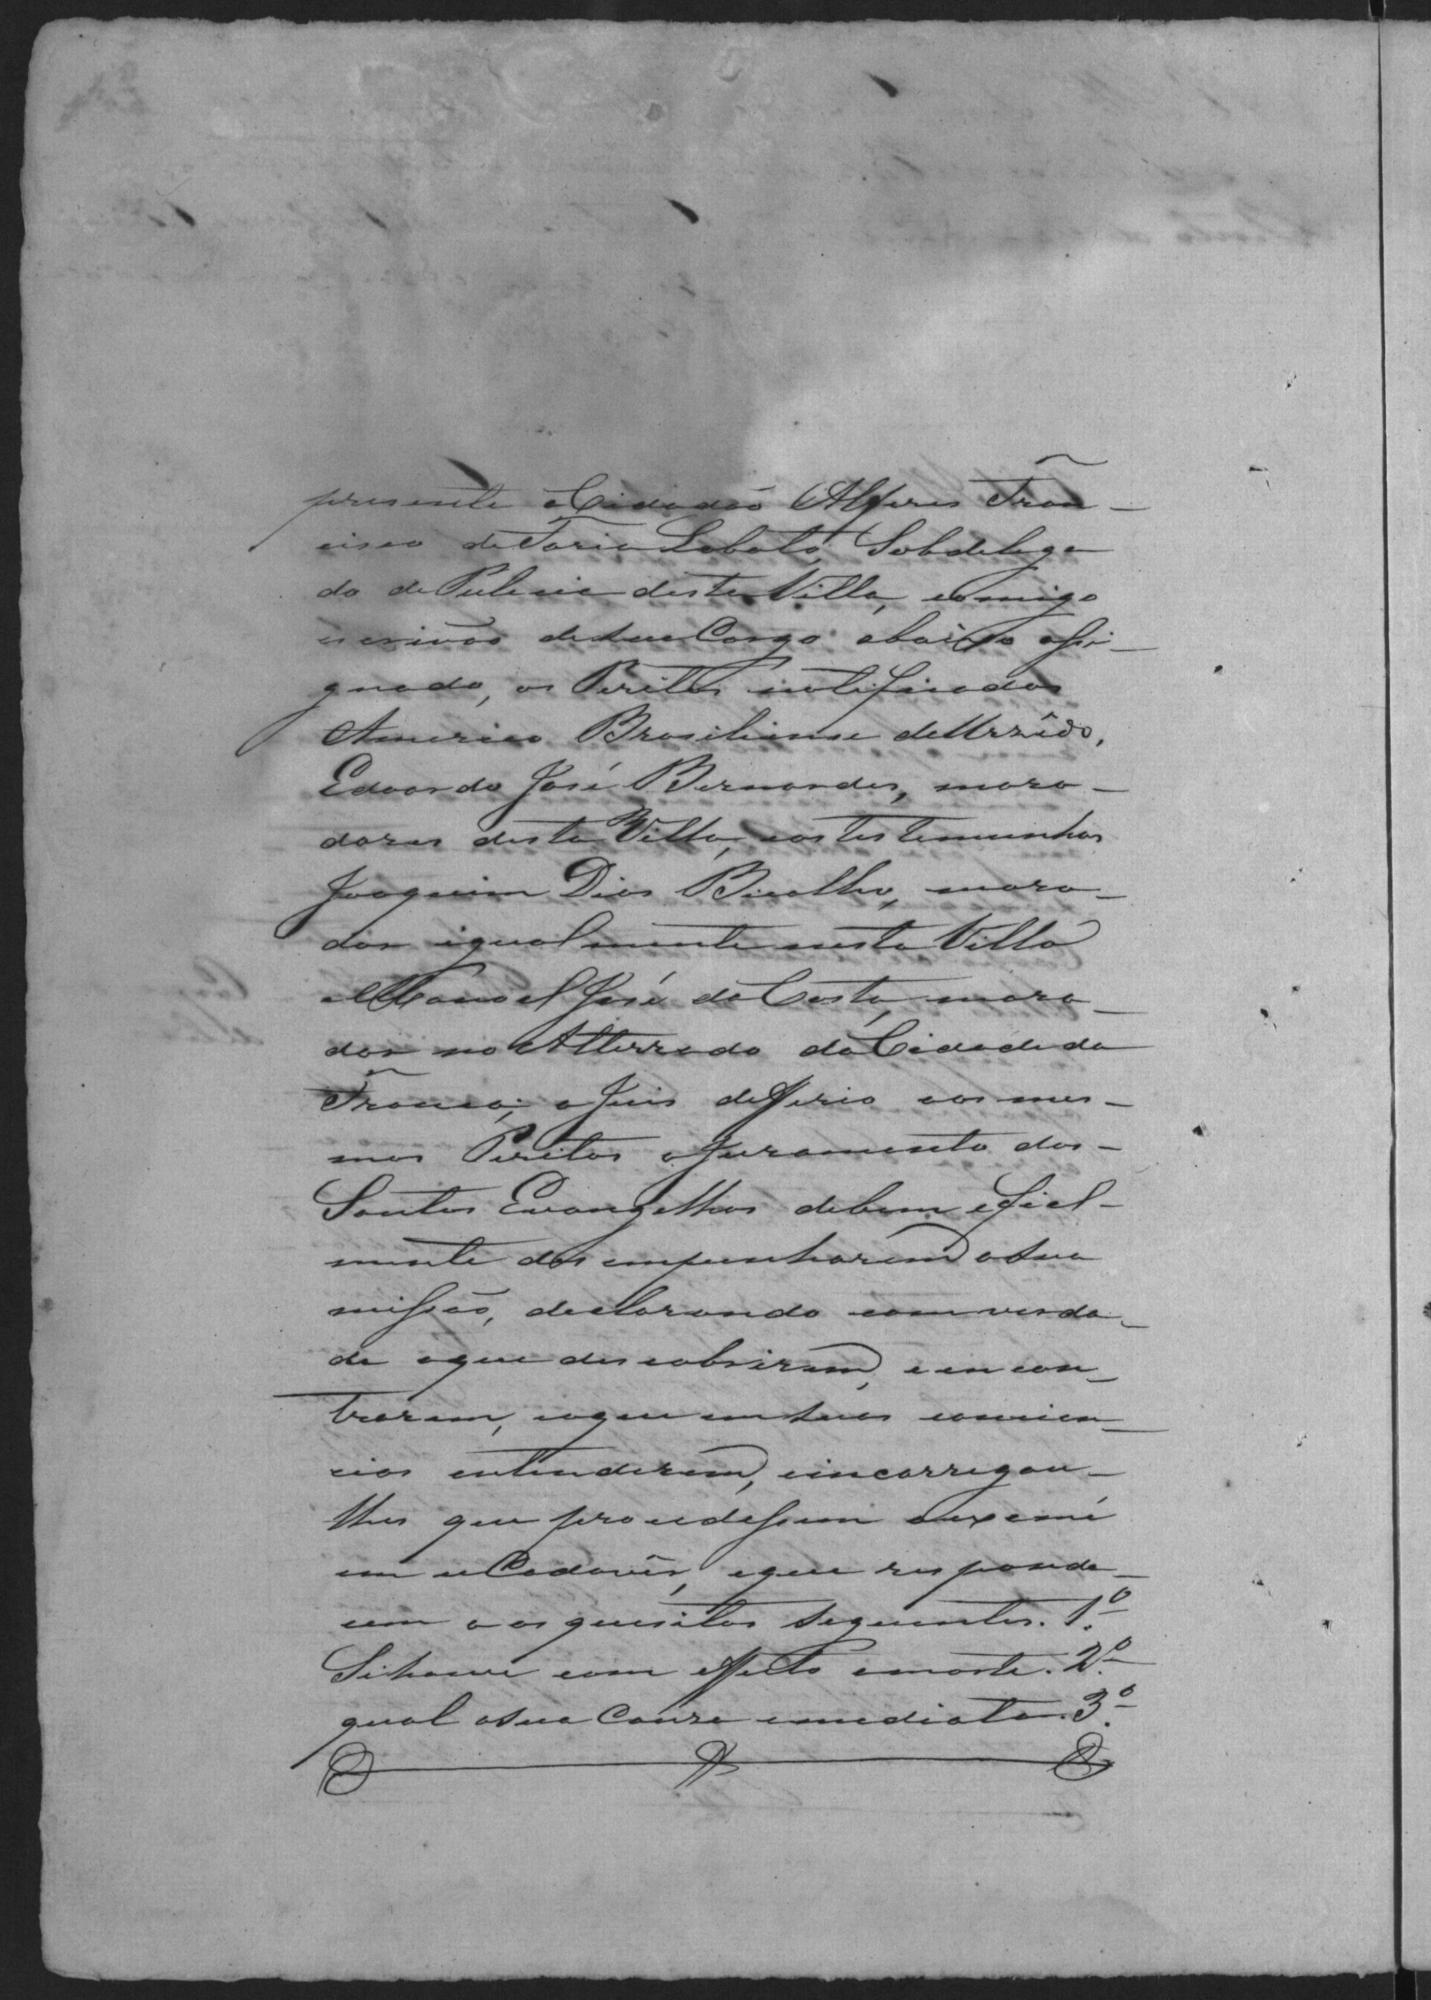 presente o Cidadão Alferes Fran-
cisco de Faria Lobato, Subdelega
do de Policia desta Villa, comigo
escrivão de seu Cargo abaixo assi-
gnado, os Peritos notificados
Americo Brasiliense
Eduardo José Bernardes, mora-
dores desta Villa, e as testemunhas
Joaquim Dias mora-
dor igualmente nesta Villa
e Manoel José da Costa, mora-
dor no Atterrado da Cidade da
Franca; o Juis defferio aos mes-
mos Peritos o juramento dos
Santos Evangelhos de bem e fiel-
mente desempenharem a sua
missão, declarando com verda-
de o que descobrirem, e encon-
trarem, e o que em suas conscien-
cias entenderem, e incarregou-
lhes que procedessem o exame
em o Cadaver, e que responde-
cem aos quesitos seguentes. 1º
Si houve com effeito a morte. 2º
qual a sua Causa emediata. 3º